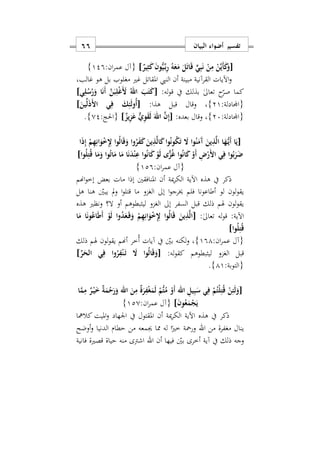 ٦٦ تفسير أضواء البيان
[وَكَأَيِّنْ مِنْ نَبِيٍّ قَاتَلَ مَعَهُ رِبِّيُّونَ كَثِيرٌ] {آل عمران:١٤٦}
والآيات القرآنية مبينة أن النبي المقاتل غير مغلوب بل هو غالب،
كما صرّح تعالى بذلك في قوله: [كَتَبَ اللهُ لَأَغْلِبَنَّ أَنَا وَرُسُلِي]
{المجادلة:٢١}، وقال قبل هذا: [أُولَئِكَ فِي الأَذَلِّينَ]
{المجادلة:٢٠}، وقال بعده: [إِنَّ اللهَ لَقَوِيٌّ عَزِيزٌ] {الحج:٧٤}.
[يَا أَيُّهَا الَّذِينَ آَمَنُوا لَا تَكُونُوا كَالَّذِينَ كَفَرُوا وَقَالُوا لِإِخْوَانِهِمْ إِذَا
ضَرَبُوا فِي الأَرْضِ أَوْ كَانُوا غُزًّى لَوْ كَانُوا عِنْدَنَا مَا مَاتُوا وَمَا قُتِلُوا]
{آل عمران:١٥٦}
ذكر في هذه الآية الكريمة أن المنافقين إذا مات بعض إخوانهم
يقولون لو أطاعونا فلم يخرجوا إلى الغزو ما قتلوا ولم يبيّن هنا هل
يقولون لهم ذلك قبل السفر إلى الغزو ليثبطوهم أو لا؟ ونظير هذه
الآية: قوله تعالى: [الَّذِينَ قَالُوا لِإِخْوَانِهِمْ وَقَعَدُوا لَوْ أَطَاعُونَا مَا
قُتِلُوا]
{آل عمران:١٦٨}، ولكنه بيّن في آيات أُخر أنهم يقولون لهم ذلك
قبل الغزو ليثبطوهم كقوله: [وَقَالُوا لَا تَنْفِرُوا فِي الْحَرِّ]
{التوبة:٨١}.
[وَلَئِنْ قُتِلْتُمْ فِي سَبِيلِ اللهِ أَوْ مُتُّمْ لَمَغْفِرَةٌ مِنَ اللهِ وَرَحْمَةٌ خَيْرٌ مِمَّا
يَجْمَعُونَ] {آل عمران:١٥٧}
ذكر في هذه الآية الكريمة أن المقتول في الجهاد والميت كلاهما
ينال مغفرة من الله ورحمة خيرًا له مما يجمعه من حطام الدنيا وأوضح
وجه ذلك في آية أخرى بيّن فيها أن الله اشترى منه حياة قصيرة فانية